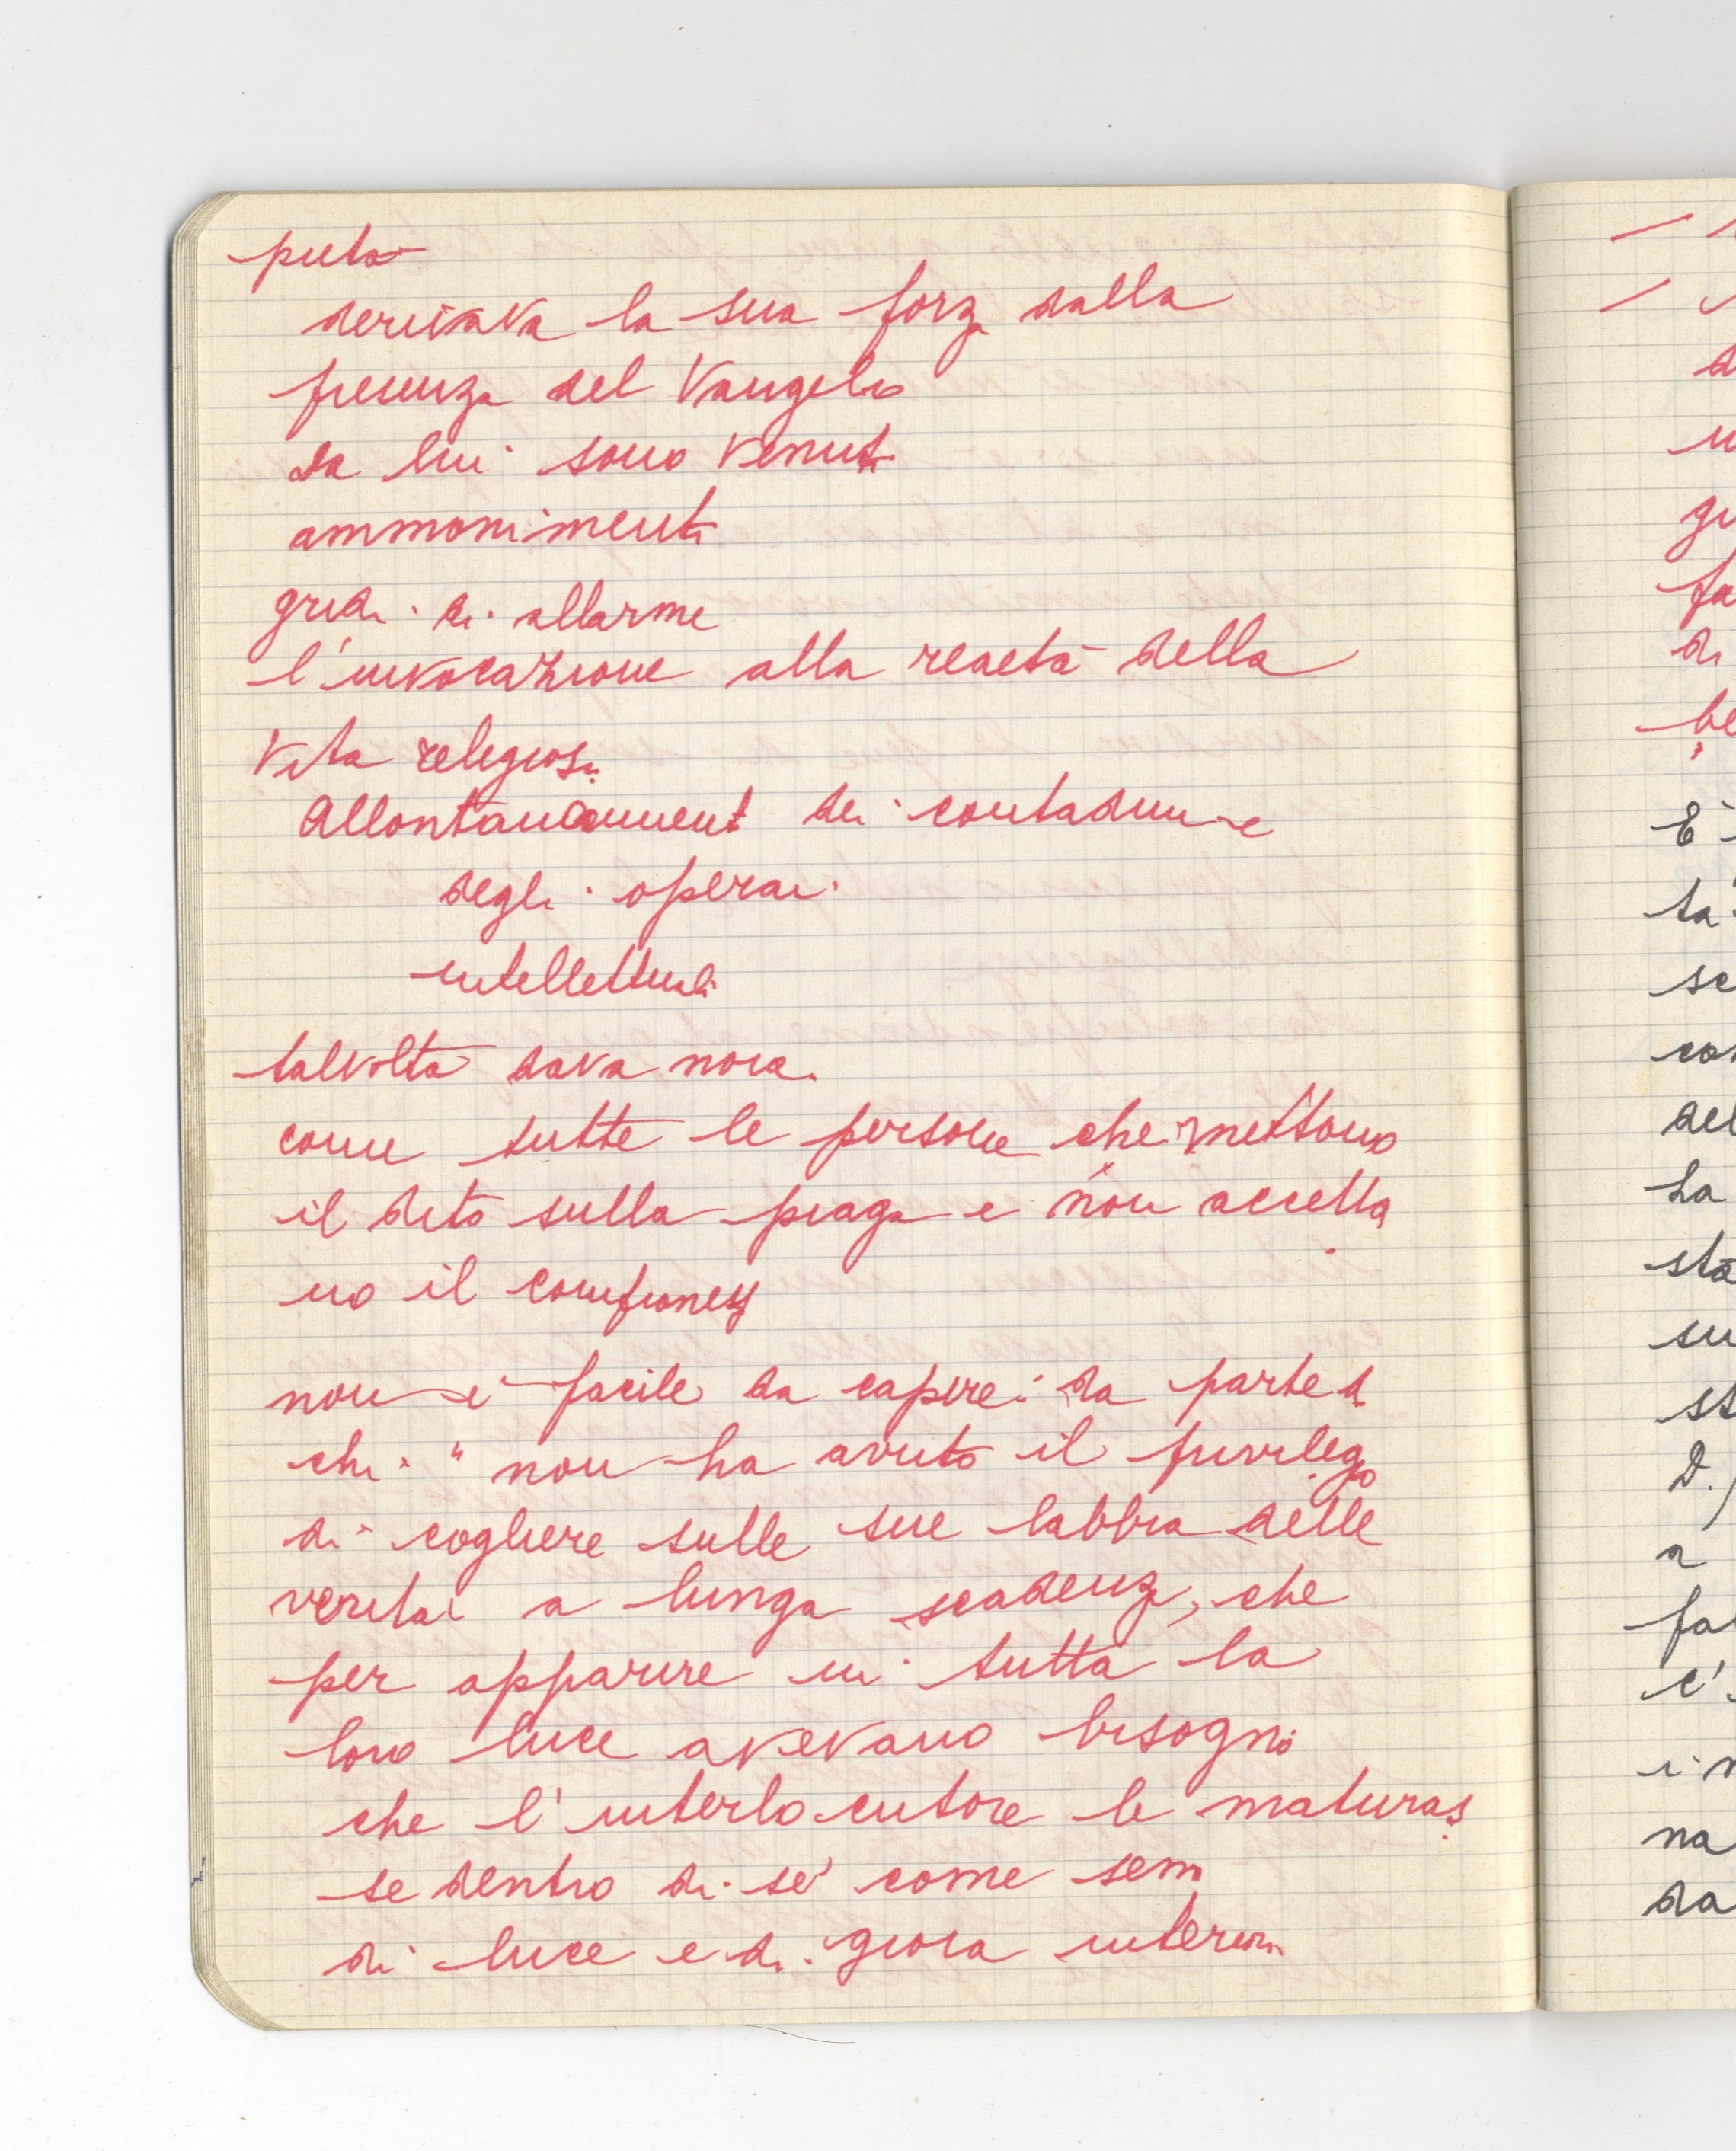 pietà
derivava la sua forza dalla
presenza del Vangelo
da lui sono venuti
ammonimenti
gridi di allarme
l'invocazione alla realtà della
vita religiosa.
Allontanamento dei contadini e
degli operai
intellettuali
talvolta dava noia.
come tutte le persone che mettono
il dito sulla piaga e non accetta
no il
non è facile da capire: da parte di
chi " non ha avuto il privilegio
di cogliere sulle sue labbra delle
verità a lunga scadenza, che
per apparire in tutta la
loro luce avevano bisogno
che l'interlocutore le maturas
se dentro di sé come semi
di luce e di gioia interiore